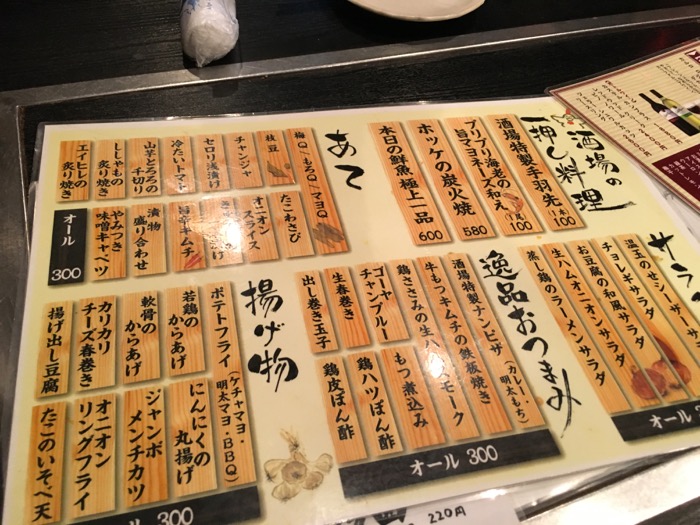 酒場の
一押し料理
酒場特製手羽先
(一本)
100
プリプリ海老の
旨マヨチーズ和え
(一尾)
100
ホッケの炭火焼
580
本日の鮮魚極上一品
600
あて
梅Q/もろQ/マヨQ
枝豆
チャンジャ
セロリ浅漬け
冷たいトマト
山芋とろろの
千切り
ししゃもの
炙り焼き
エイヒレの
炙り焼き
たこわさび
オニオン
スライス
旨辛キムチ
漬物
盛り合わせ
やみつき
味噌キャベツ
オール
300
サラ
温玉のせシーザーサ
チョレギサラダ
お豆腐の和風サラダ
生ハムオニオンサラダ
蒸し鶏のラーメンサラダ
オール
逸品おつまみ
酒場特製ナンピザ
(カレー・
明太もち)
牛もつキムチの鉄板焼き
鶏ささみの生ハム
モーク
ゴーヤ
チャンプルー
生春巻き
出し巻き玉子
もつ煮込み
鶏ハツぽん酢
鶏皮ぽん酢
オール 300
揚げ物
ポテトフライ
(ケチャマヨ・
明太マヨ・BBQ)
若鶏の
からあげ
軟骨の
からあげ
カリカリ
チーズ春巻き
揚げ出し豆腐
にんにくの
丸揚げ
ジャンボ
メンチカツ
オニオン
リングフライ
たこのいそべ天
オール 300
220円